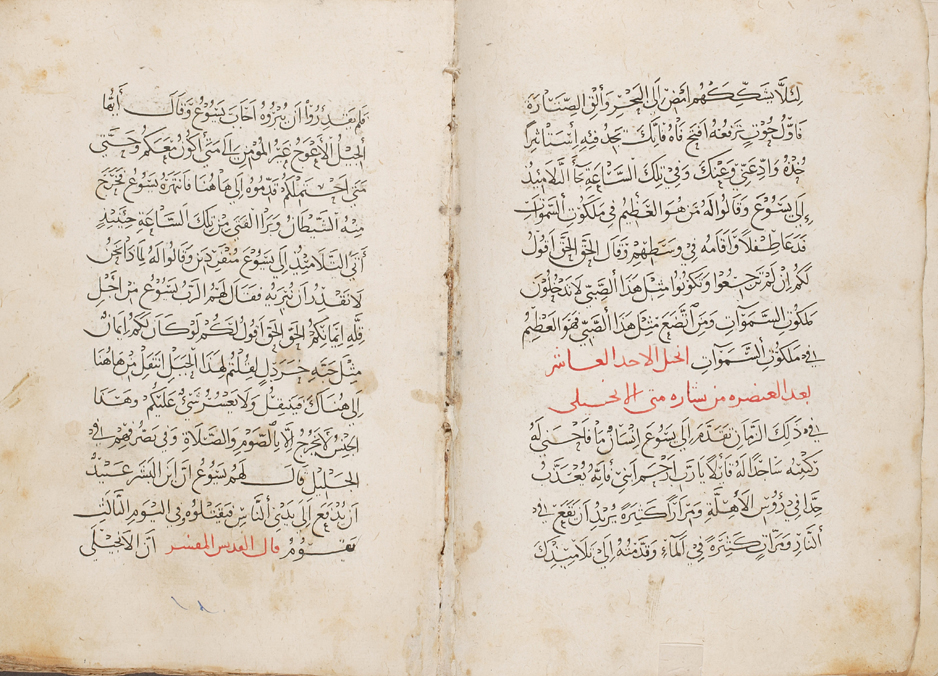 لئلا يشككهم امض الى البحر والق الصنارة
فاول حوت ترفعه افتح فاه فانك تجد فيه استاثيرا
خذه واد عني وعنك وفي تلك الساعة جا التلاميذ
الى يسوع وقالوا له من هو العظيم في ملكوت السموات
فدعا طفلا واقامه في وسطهم وقال الحق الحق اقول
لكم ان لم ترجعوا وتكونوا مثل هذا الصبي لا تدخلون
ملكوت السموات ومن اتضع مثل هذا الصبي فهو العظيم
في ملكوت السموات انجيل الاحد العاشر
بعد العنصره من بشاره متى الانجيلي
في ذلك الزمان تقدم الى يسوع انسان ما فاحنى له
ركبتيه ساجدا له قايلا يا رب ارحم ابني فانه يعذب
جدا في رؤس الاهلة ومرارا كثيرة يريد ان يقع في
النار ومرات كثيرة في الماء وقدمته الى تلاميذك
فلم يقدروا ان يبروه اجاب يسوع وقال ايها
الجيل الاعوج غير المؤمن الى متى اكون معكم وحتى
متى احتملكم قدموه الى هاهنا فانتهره يسوع فخرج
منه الشيطان وبرا الفتى من تلك الساعة حينيذ
اتى التلاميذ الى يسوع منفردين وقالوا له لماذا نحن
لا نقدر ان نبريه فقال لهم الرب يسوع من اجل
قلة ايمانكم الحق الحق اقول لكم لو كان لكم ايمان
مثل حبة خردل لقلتم لهذا الجبل انتقل من هاهنا
الى هناك فينتقل ولا يعسر شي عليكم وهذا
الجنس لا يخرج الا بالصوم والصلاة وفي تصرفهم في
الجليل قال لهم يسوع ان ابن البشر عتيد
ان يدفع الى يدي الناس فيقتلوه وفي اليوم الثالث
يقوم قال القديس المفسر ان الانجيلي
١٨